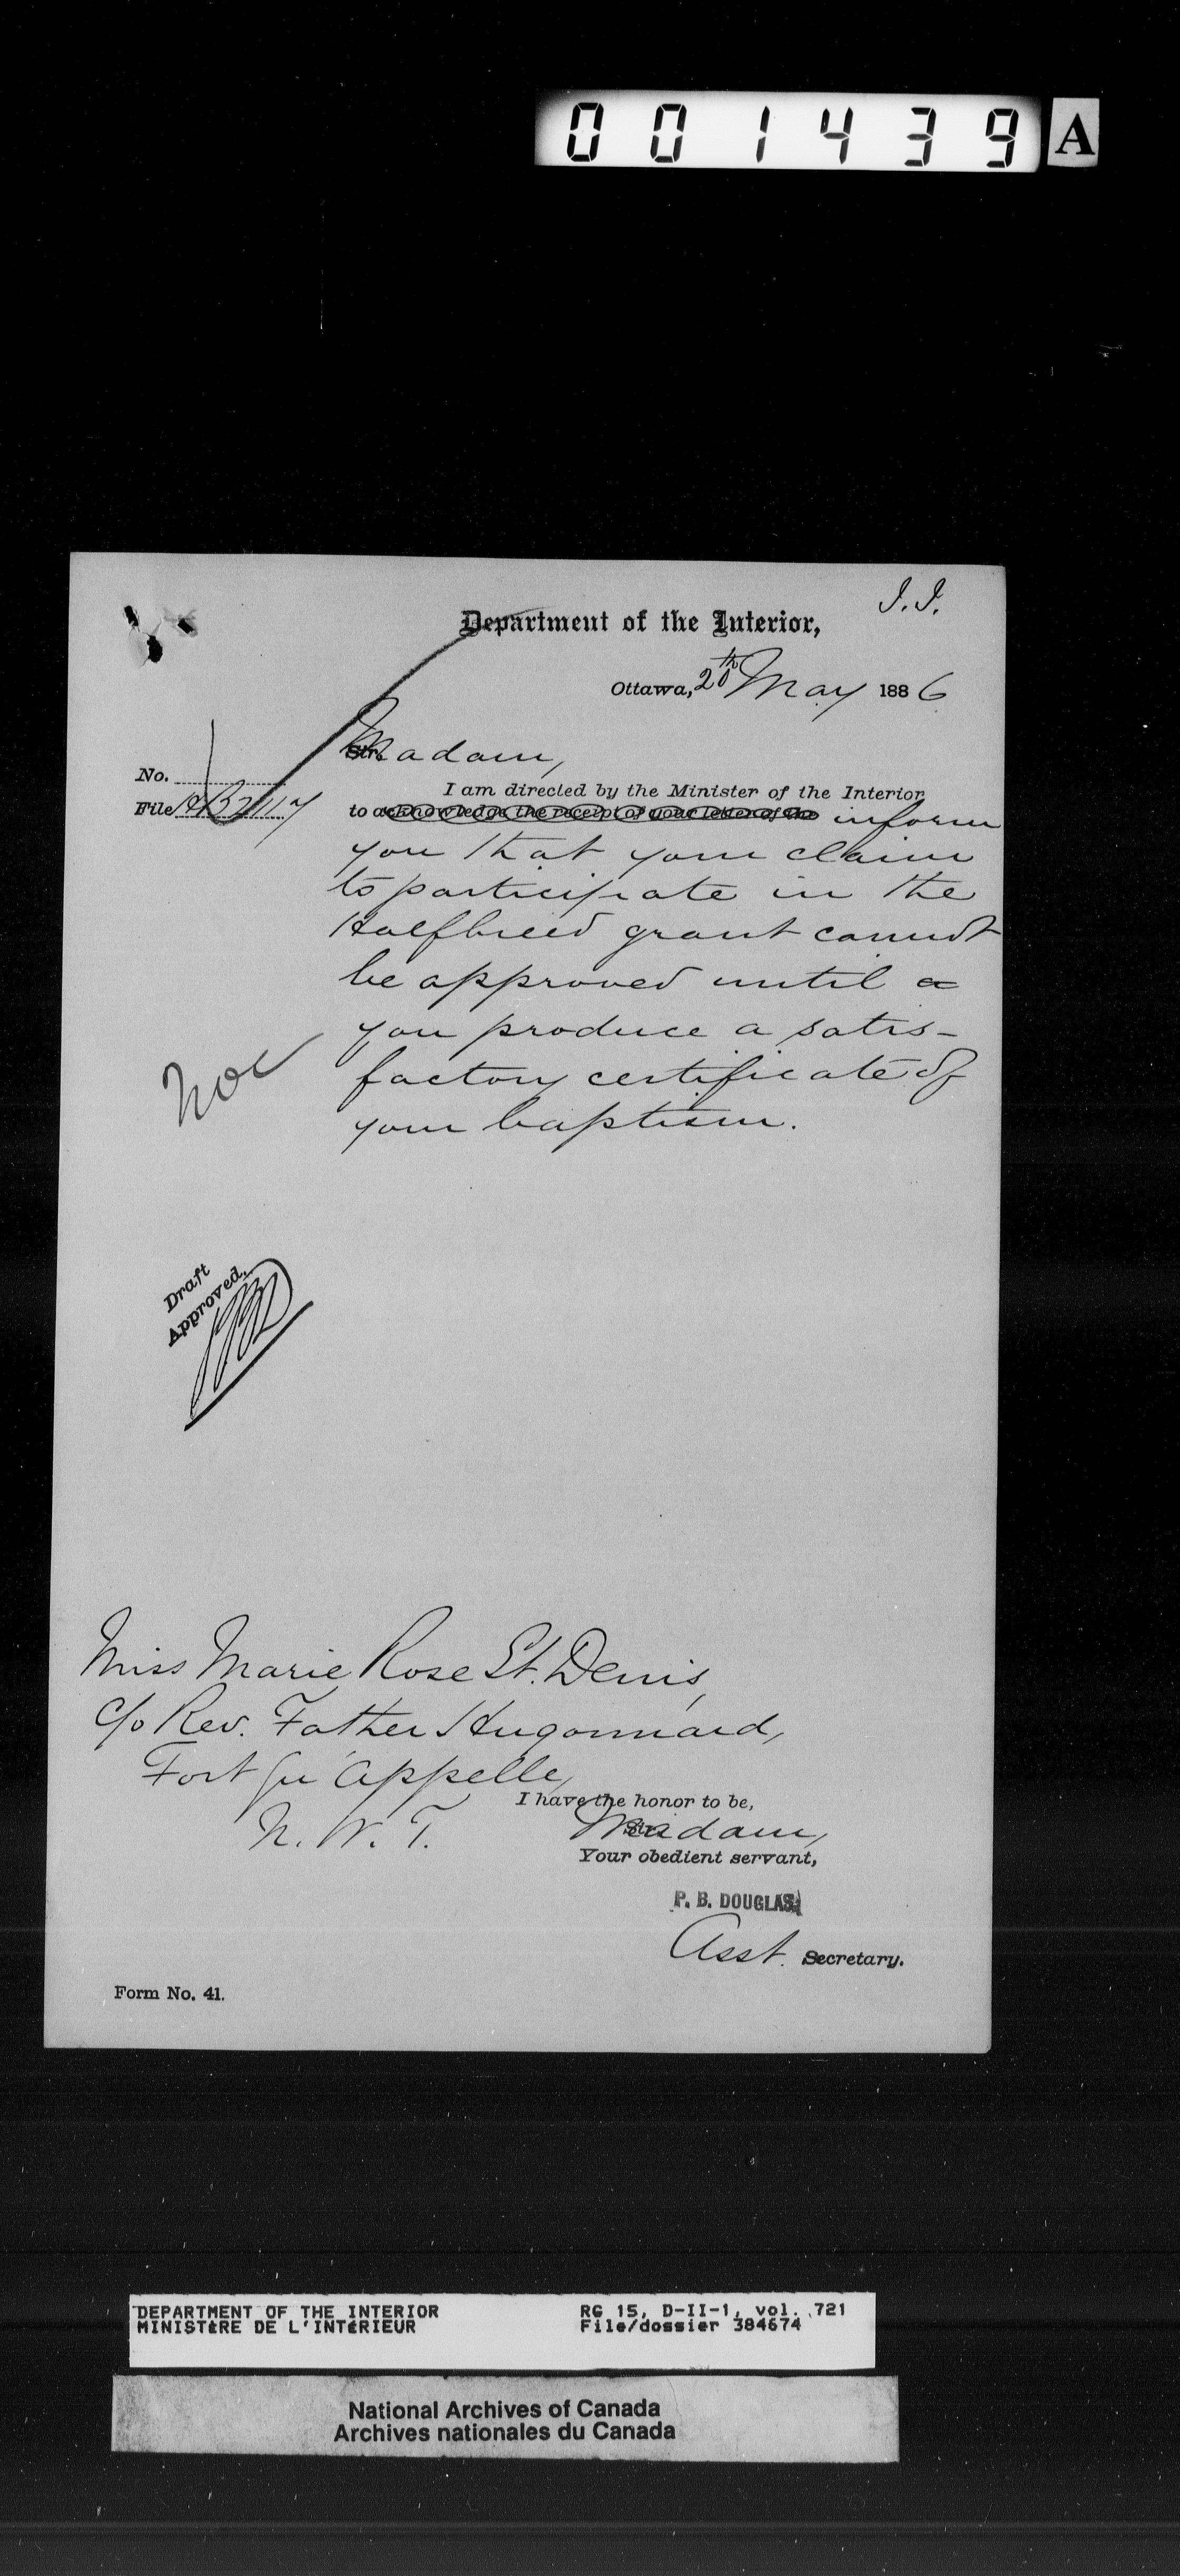 001439 A
J. J.
Department of the Interior,
Ottawa, 20th May 1886
Madam,
No.
File HB2117
I am directed by the Minister of the Interior
to acknowledge the receipt of your letter of the inform
you that your claim
to participate in the
Halfbreed grant cannot
be approved until a
you produce a satis-
factory certificate of
your baptism.
Draft
Approved.
Miss Marie Rose St. Denis,
c/o Rev. Father Hugonnard,
Fort Qu'Appelle,
N. W. T.
I have the honor to be,
Madam,
Your obedient servant,
P. B. DOUGLAS,
Asst. Secretary.
Form No. 41.
DEPARTMENT OF THE INTERIOR RG 15, D-II-1, vol. 721
MINISTÈRE DE L'INTÉRIEUR File/dossier 384674
National Archives of Canada
Archives nationales du Canada